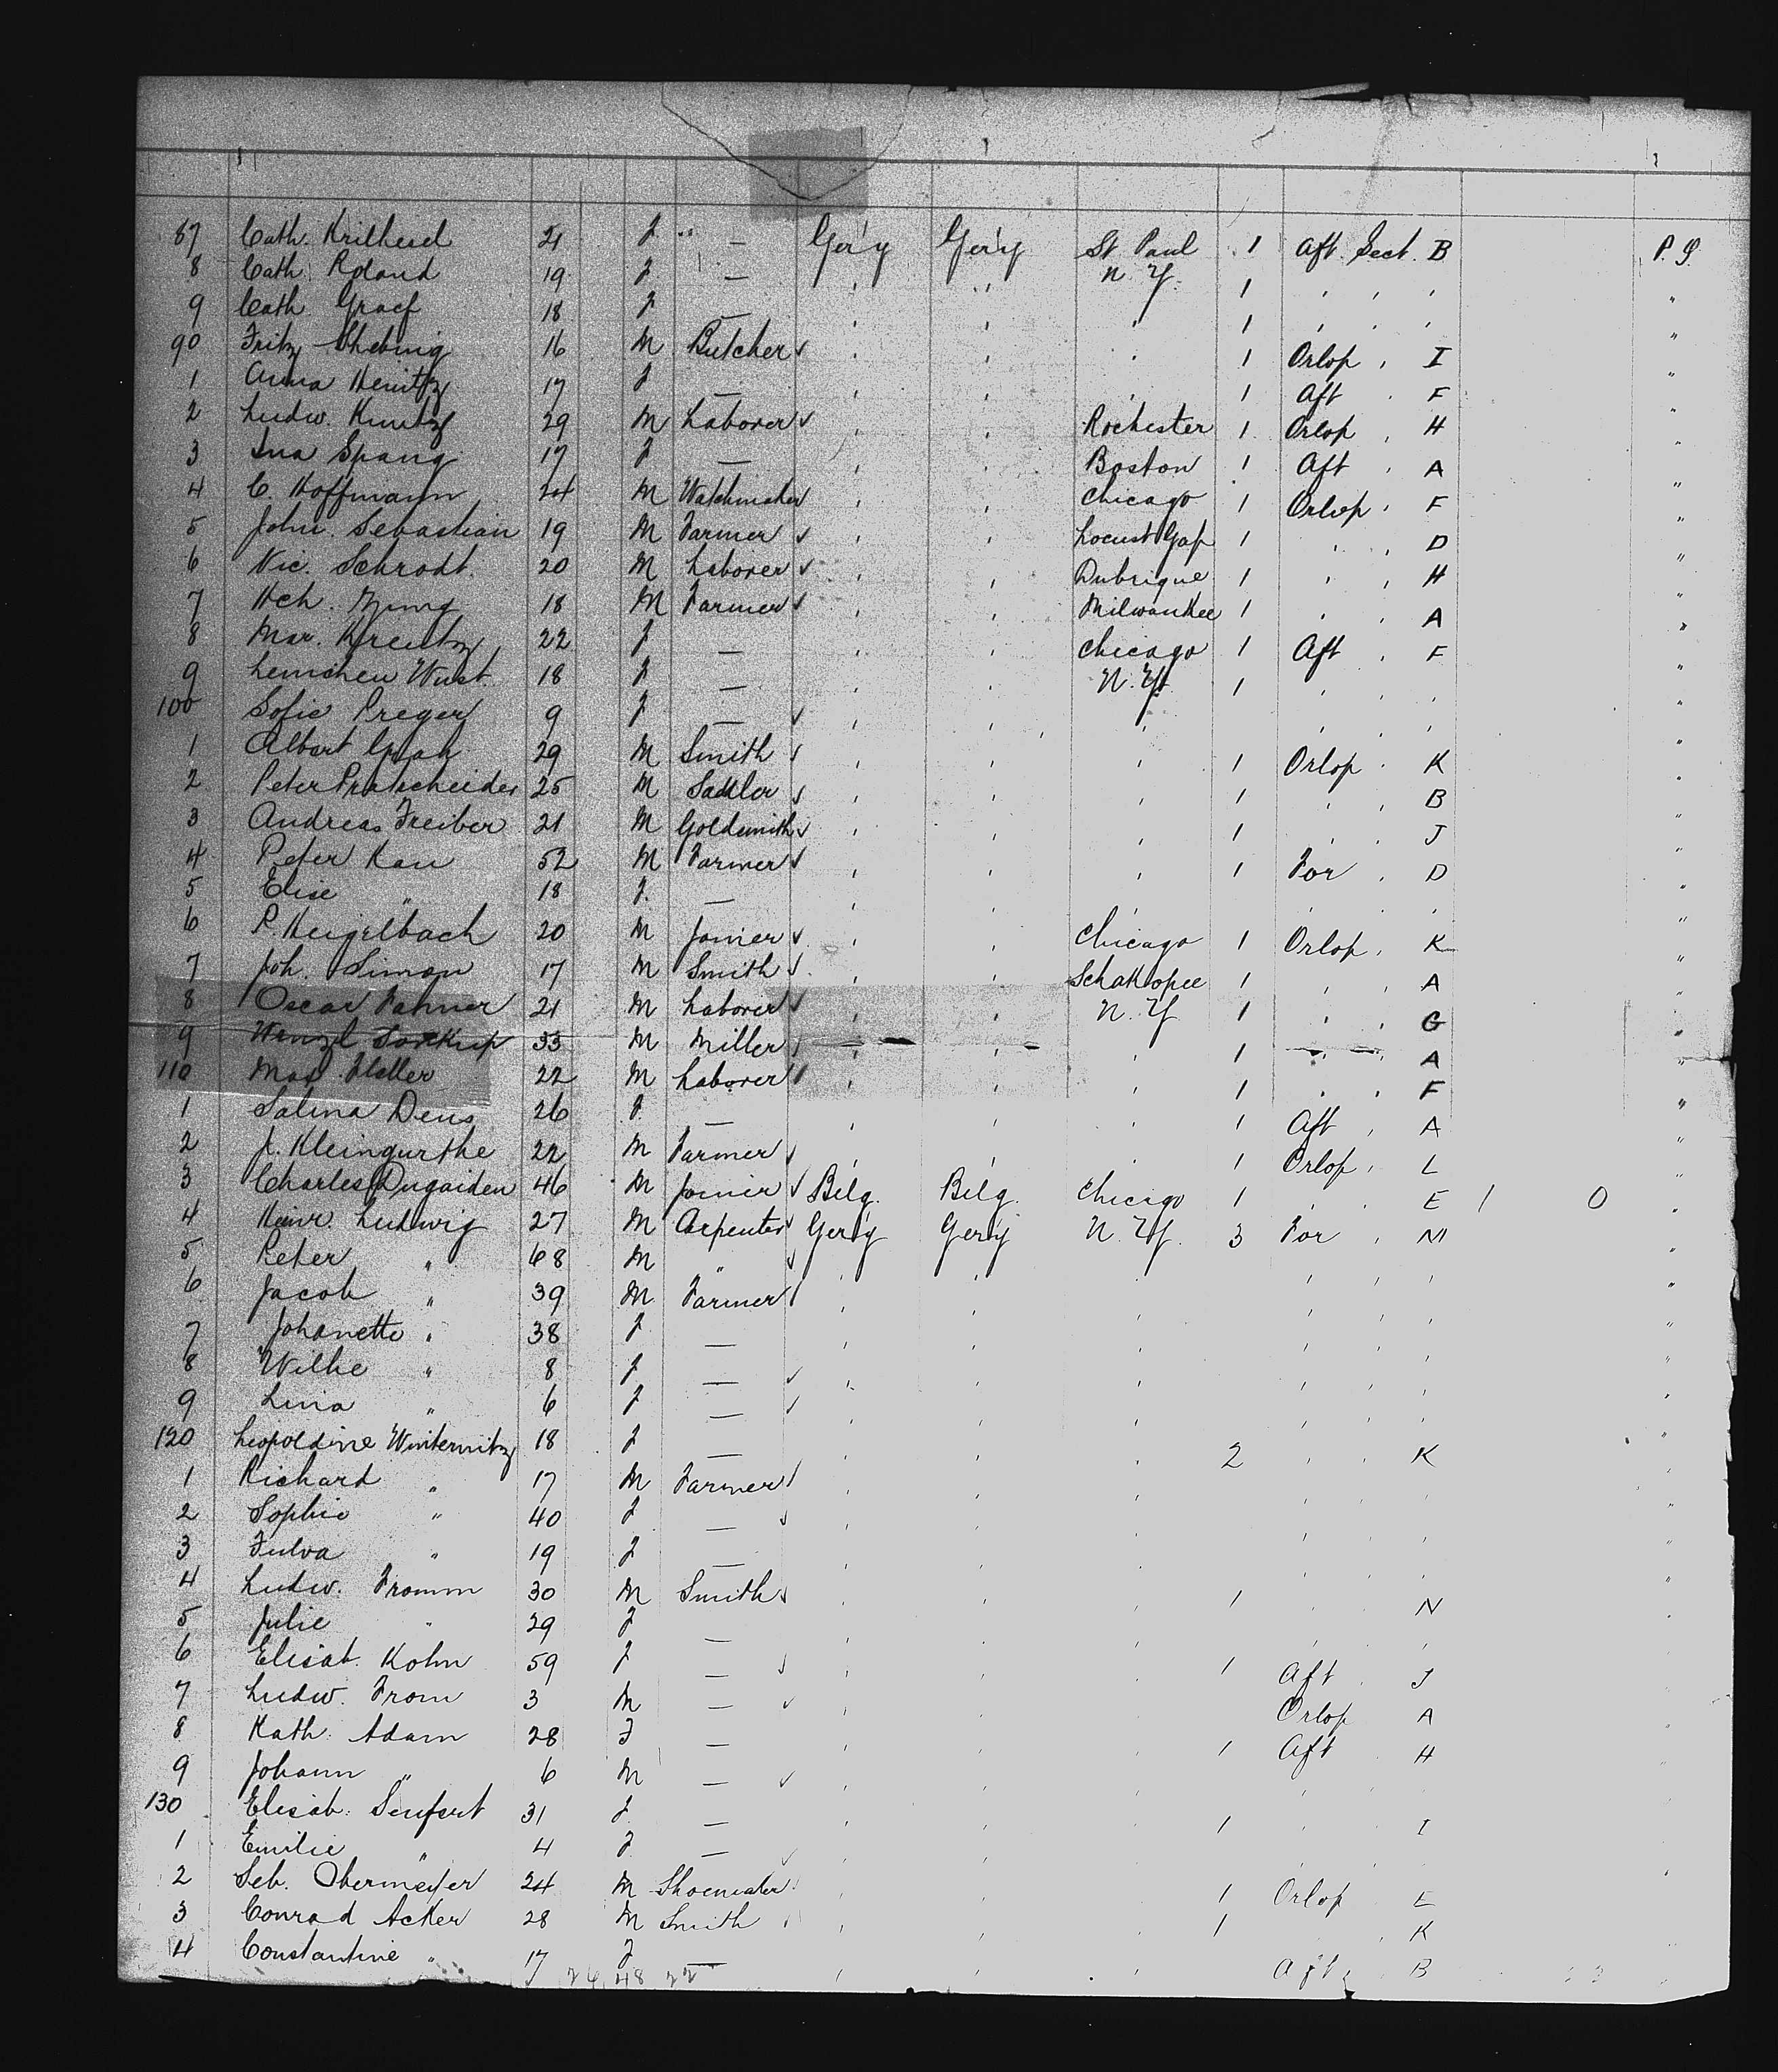 87 Cath. Krilhesel 21 f " — Ger'y Ger'y St Paul 1 Aft. Sect. B P.S.
8 Cath. Roland 19 f — ' ' N.Y. 1 ' ' ' "
9 Cath. Graef 18 f — ' ' ' 1 ' ' ' "
90 Fritz 16 M Butcher ✓ ' ' ' 1 Orlop ' I "
1 Anna 17 f — ' ' ' 1 Aft ' F "
2 Ludw. 29 M Laborer ✓ ' ' Rochester 1 Orlop ' H "
3 Ina Spang 17 f — ' ' Boston 1 Aft ' A "
4 C. Hoffmann 24 M Watchmaker ' ' Chicago 1 Orlop ' F "
5 John. Sebastian 19 M Farmer ✓ ' ' Locust Gap 1 ' ' D "
6 Nic. Schrodt. 20 M Laborer ✓ ' ' Dubuque 1 ' ' H "
7 Hch. 18 M Farmer ✓ ' ' Milwaukee 1 ' ' A "
8 Mar. Kreutz 22 f — ' ' Chicago 1 Aft ' F "
9 Lenichen Wust. 18 f — ' ' N.Y. 1 ' ' ' "
100 Sofie Preger 9 f — ✓ ' ' ' ' ' ' "
1 Albert 29 M Smith ✓ ' ' ' 1 Orlop ' K "
2 Peter 25 M Sadler ✓ ' ' ' 1 ' ' B "
3 Andreas Treiber 21 M Goldsmith ✓ ' ' ' 1 ' ' J "
4 Peter Kau 52 M Farmer ✓ ' ' ' 1 For ' D "
5 Elise " 18 f. — ' ' ' ' ' ' "
6 P. Heigelbach 20 M Joiner ✓ ' ' Chicago 1 Orlop ' K "
7 Joh. Simon 17 M Smith ✓ ' ' Schakopee 1 ' ' A "
8 Oscar Fahner 21 M Laborer ✓ ' ' N.Y 1 ' ' G "
9 Wenzl 33 M Miller ✓ ' ' ' 1 ' ' A "
110 22 M Laborer ✓ ' ' ' 1 ' ' F "
1 Salina Deus 26 f — ' ' ' 1 Aft ' A "
2 J. Kleingurthe 22 M Farmer ✓ ' ' ' 1 Orlop ' L "
3 Charles Dugaiden 46 M Joiner ✓ Belg. Belg. Chicago 1 ' ' E 1 0 "
4 Heinr. Ludwig 27 M Carpenter ✓ Ger'y Ger'y N.Y. 3 For ' M "
5 Peter " 68 M " ✓ ' ' ' ' ' ' "
6 Jacob " 39 M Farmer ✓ ' ' ' ' ' ' "
7 Johanette " 38 f — ' ' ' ' ' ' "
8 Wilhe " 8 f — ✓ ' ' ' ' ' ' "
9 Lina " 6 f — ✓ ' ' ' ' ' ' "
120 Leopoldine Winternitz 18 f — ' ' ' 2 ' ' K "
1 Richard " 17 M Farmer ✓ ' ' ' ' ' ' "
2 Sophie " 40 f — ✓ ' ' ' ' ' ' "
3 Fulva " 19 f — ' ' ' ' ' ' "
4 Ludw. Fromm 30 M Smith ✓ ' ' ' 1 ' ' N "
5 Julie " 29 f — ' ' ' ' ' ' "
6 Elisab. Kohn 59 f — ✓ ' ' ' 1 Aft ' J
7 Ludw. From 3 M — ✓ ' ' ' Orlop A
8 Kath. Adam 28 F — ' ' ' 1 Aft ' H
9 Johann " 6 M — ✓ ' ' ' ' ' '
130 Elisab. Seufert 31 f — ' ' ' 1 ' ' I
1 Emilie " 4 f — ✓ ' ' ' ' ' '
2 Seb. Obermeyer 24 M Shoemaker ' ' ' 1 Orlop E
3 Conrad Acker 28 M Smith ' ' ' 1 ' K
4 Constantine " 17 f — ' ' ' Aft B